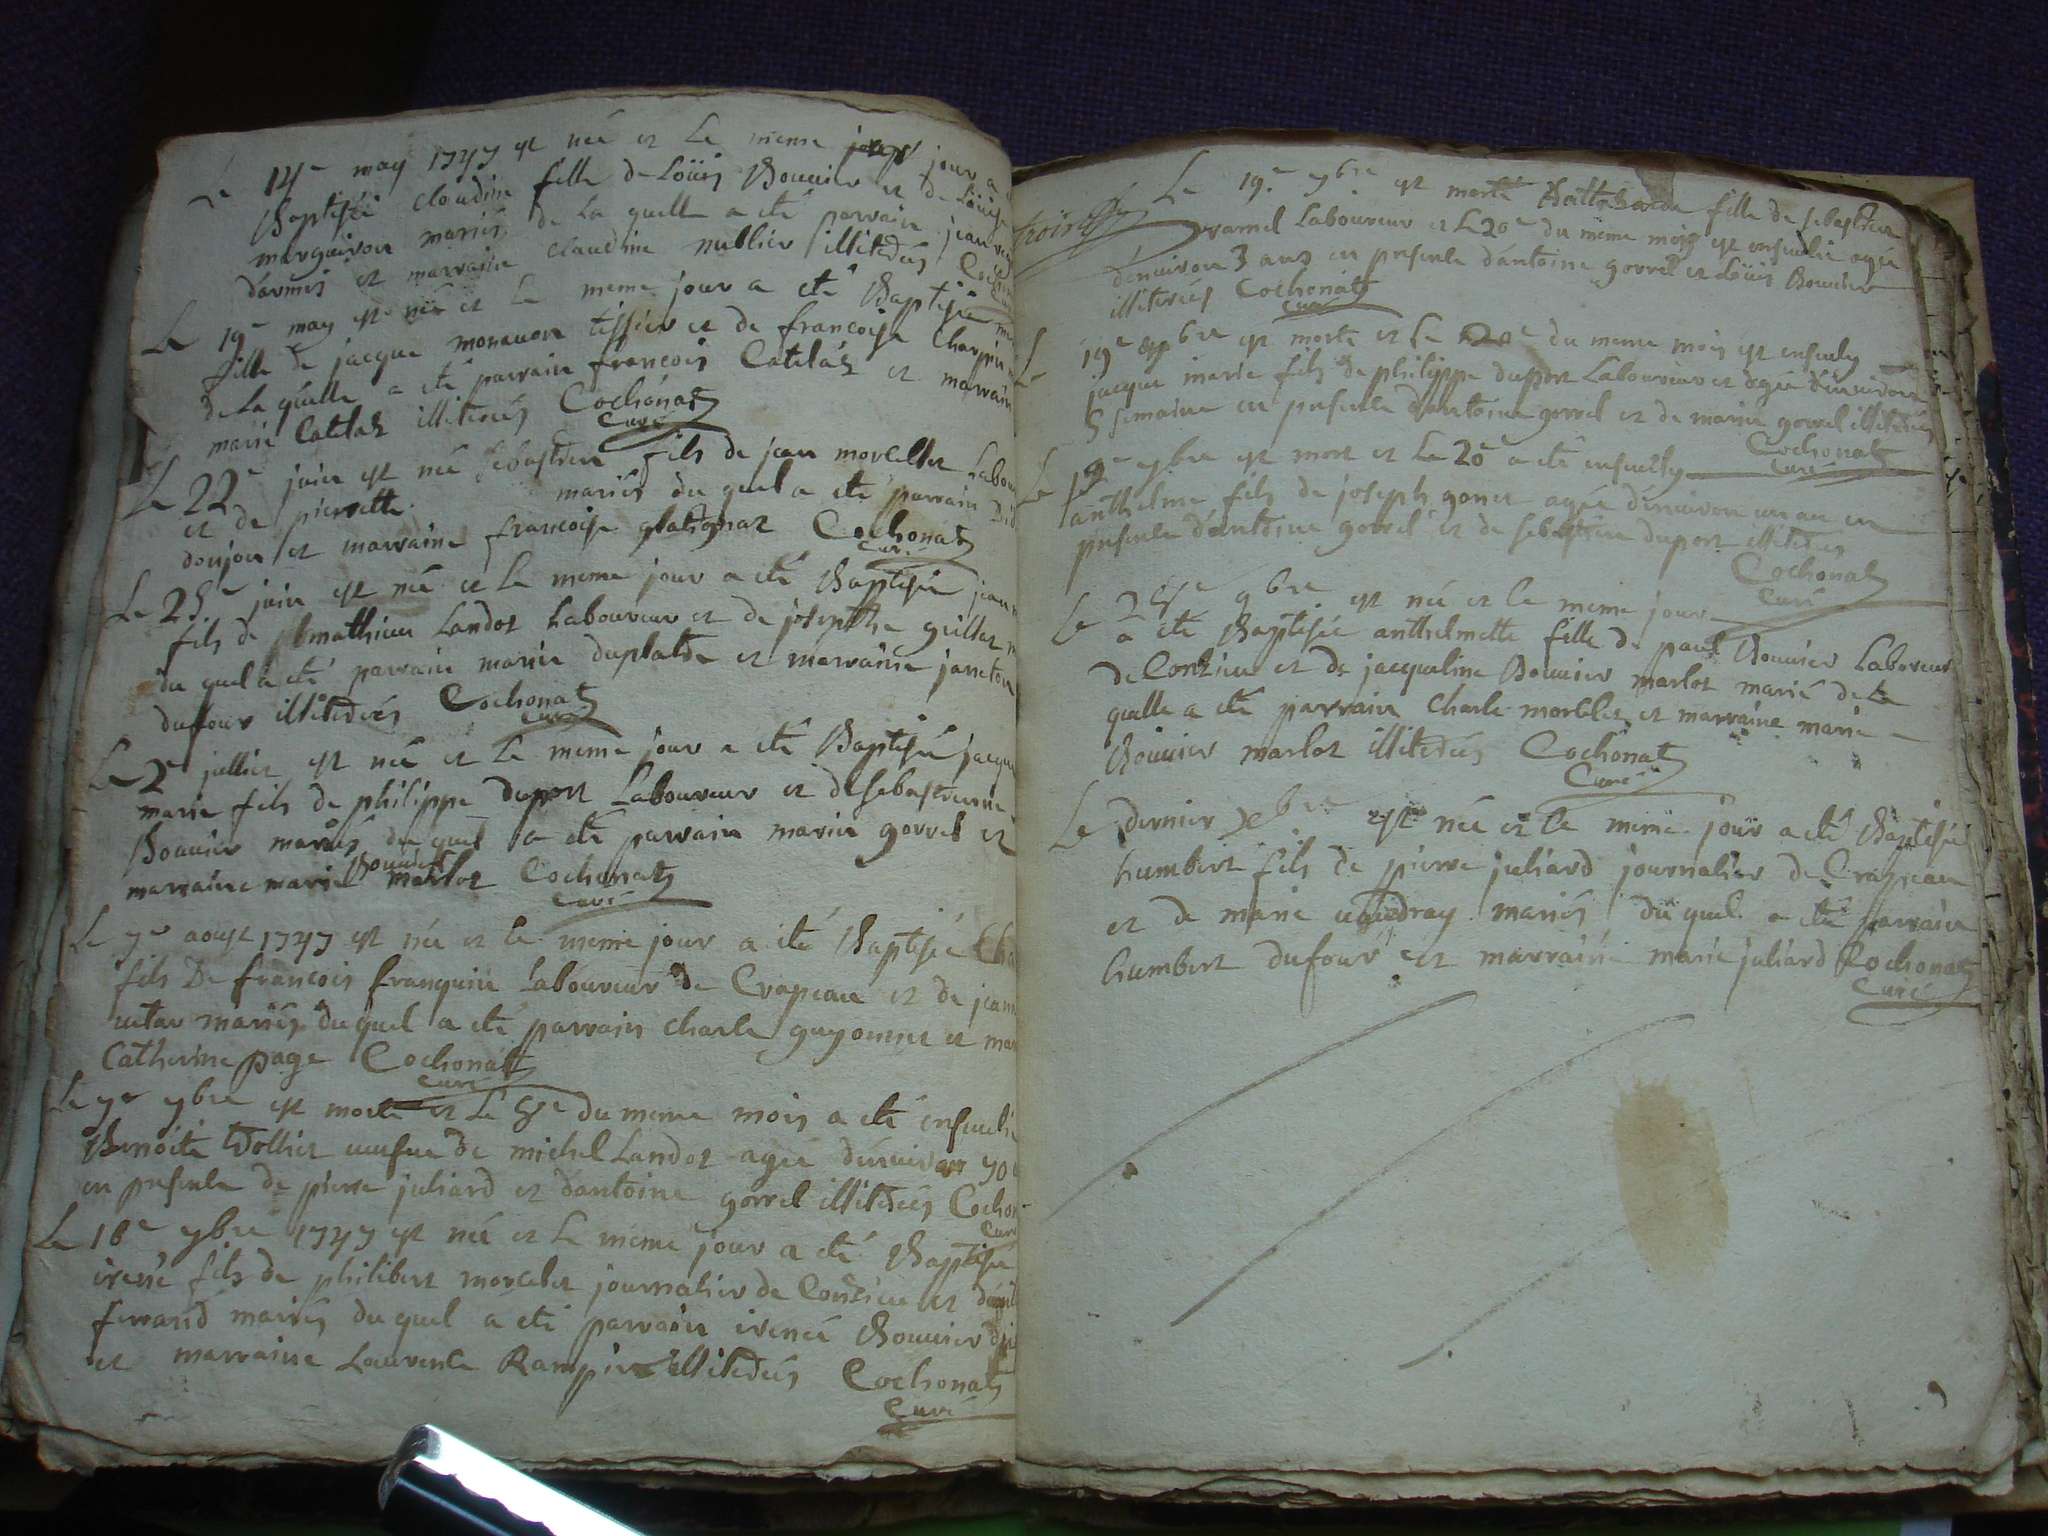 Le 14e may 1747 est née et le meme jour a
Baptisée claudine fille de Loüis Bouvier et de Loüise
marguiron mariés de la quelle a eté parrain jean
darmis et marraine claudine nublier illiterés
Le 19e may est née et le meme jour a eté Baptisée
fille de jacque monavon tissier et de francoise
de la quelle a eté parrain francois Catelaz et marraine
marie Catelaz illiterés Cochonat
Curé
Le 22e juin est né sebastien fils de jean morcellet
et de pierrette mariés du quel a eté parrain
donjon et marraine francoise glatignat Cochonat
Curé
Le 25e juin est né et le meme jour a eté Baptisé jean
fils de mathieu Landot Laboureur et de josepthe
du quel a eté parrain marin duplatre et marraine janeton
dufour illiterés Cochonat
Curé
Le 2e jullier est né et le meme jour a eté Baptisé jacque
marie fils de philippe duport Laboureur et de sebastienne
Bouvier mariés du quel a eté parrain marin gorrel et
marraine marie Bouvier marlot Cochonat
Curé
Le 7e aoust 1747 est né et le meme jour a eté Baptisé
fils De francois franquin Laboureur de Crapeau et de
mariés du quel a eté parrain charle guyonnet et
Catherine page Cochonat
Curé
Le 7e 7bre est morte et le 8e du meme mois a eté ensevelie
Benoite veufve de michel Landot agée denviron 70
en presence de pierre juliard et dantoine gorrel illiterés
Curé
Le 18e 7bre 1747 est né et le meme jour a eté Baptisé
irené fils de philibert morcelet journalier de Conzieu et
ferrand mariés du quel a eté parrain irené Bouvier
et marraine Laurence Rampin illiterés Cochonat
Curé
Le 19e 7bre est morte fille de sebastien
Laboureur et le 20e du meme mois est ensevelie agée
denviron 3 ans en presence dantoine gorrel et Loüis Bouvier
illiterés Cochonat
Curé
Le 19e 7bre est morte et le 20e du meme mois est ensevely
jacque marie fils de philippe duport Laboureur et agée denviron
5 semaine en presence dantoine gorrel et de marin gorrel illiterés
Cochonat
Curé
Le 19e 7bre est mort et le 20e a eté ensevely
anthelme fils de joseph gonet agée denviron un an en
presence dantoine gorrel et de sebastien duport illiterés
Cochonat
Curé
Le 25e 9bre est née et le meme jour
a eté Baptisée anthelmette fille de paul Bouvier Laboreur
de Conzieu et de jacqueline Bouvier marlot marié de la
quelle a eté parrain Charle morcelet et marraine marie
Bouvier marlot illiterés Cochonat
Curé
Le dernier xbre est née et le meme jour a eté Baptisé
humbert fils de pierre juliard journalier de Crapeau
et de marie mariés du quel a eté parrain
humbert dufour et marraine marie juliard Cochonat
Curé